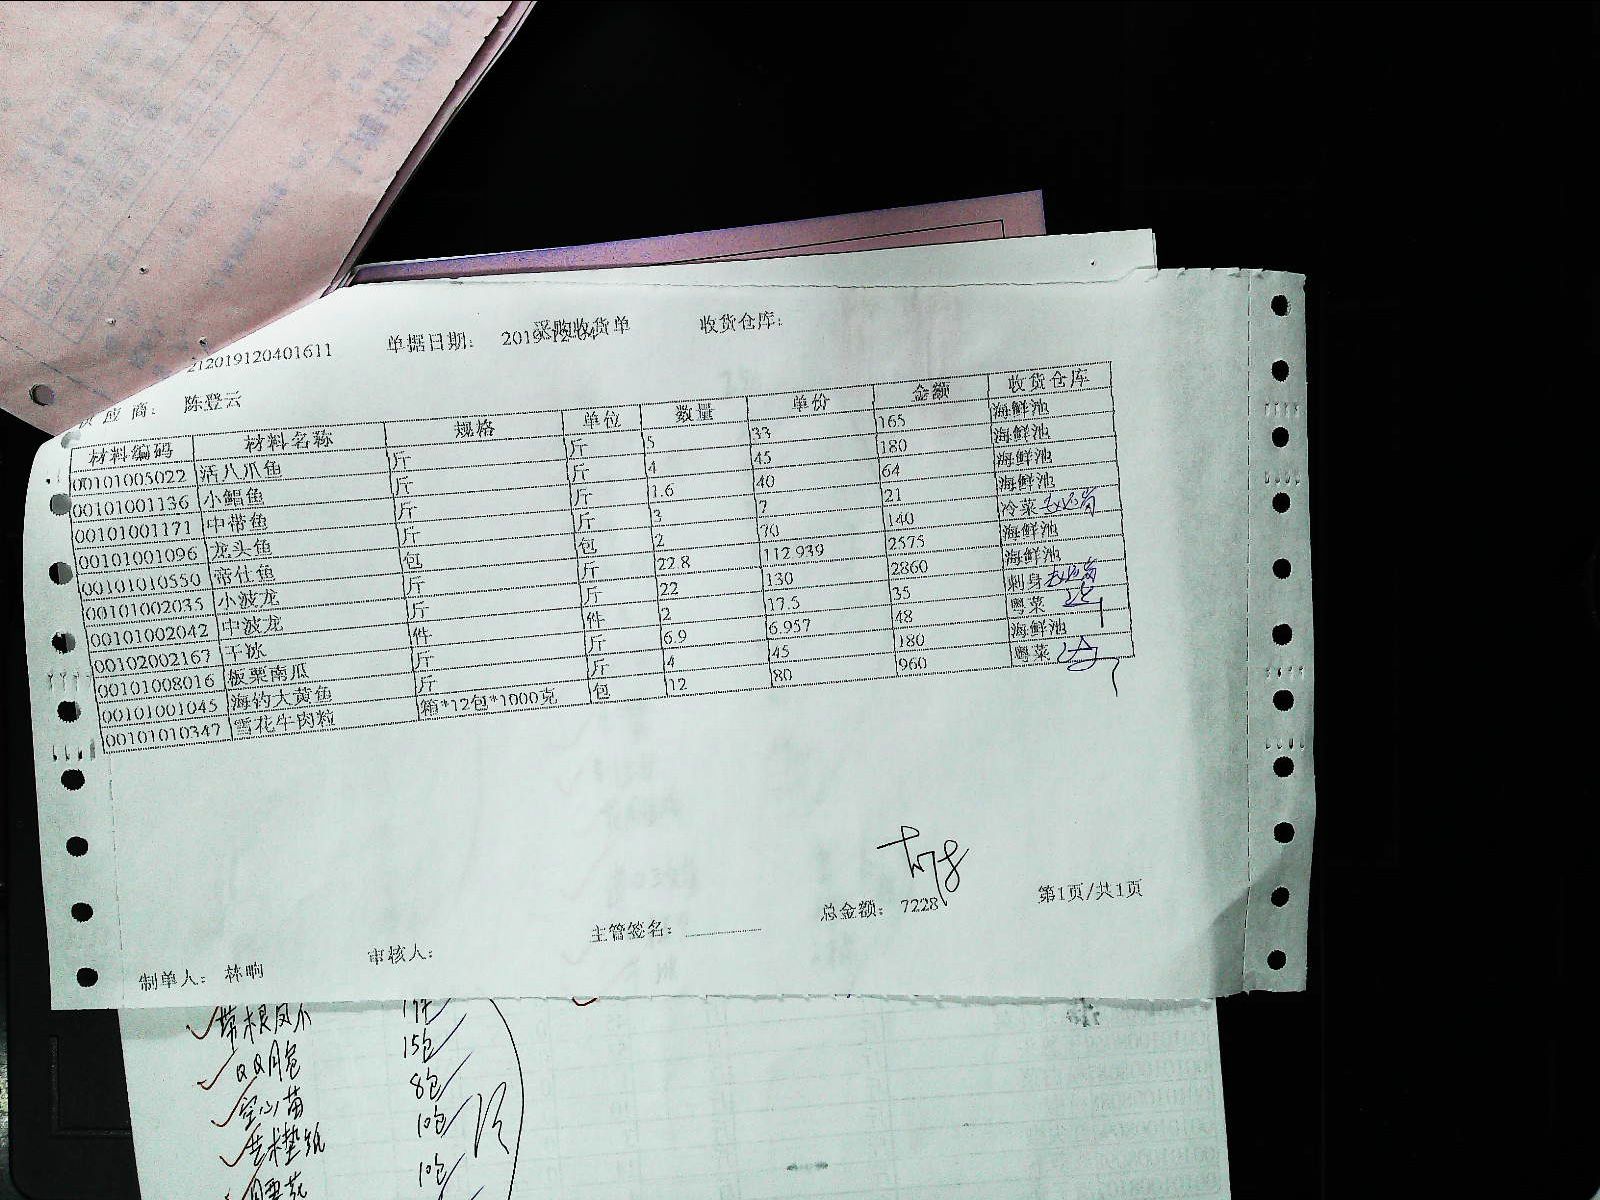 采购收货单
212019120401611 单据日期： 收货仓库：
应商： 陈登云
材料编码 材料名称 规格 单位 数量 单价 金额 收货仓库
00101005022 活八爪鱼 斤 斤 5 33 165 海鲜池
00101001136 小鲳鱼 斤 斤 4 45 180 海鲜池
00101001171 中带鱼 斤 斤 1.6 40 64 海鲜池
00101001096 龙头鱼 斤 斤 3 7 21 海鲜池
00101010550 帝仕鱼 包 包 2 70 140 冷菜
00101002035 小波龙 斤 斤 22.8 112.939 2575 海鲜池
00101002042 中波龙 斤 斤 22 130 2860 海鲜池
00102002167 干冰 件 件 2 17.5 35 刺身
00101008016 板栗南瓜 斤 斤 6.9 6.957 48 粤菜
00101001045 海钓大黄鱼 斤 斤 4 45 180 海鲜池
00101010347 雪花牛肉粒 箱*12包*1000克 包 12 80 960 粤菜
制单人： 韩晌 审核人： 主管签名： 总金额： 7228 第1页/共1页
15包
QQ月包 8包
空心苗 10包
艺术垫纸 10包